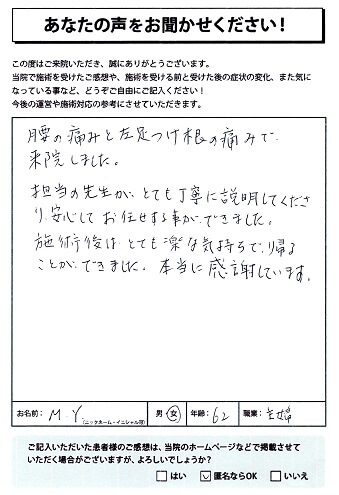 あなたの声をお聞かせください！
この度はご来院いただき、誠にありがとうございます。
当院で施術を受けたご感想や、施術を受ける前と受けた後の症状の変化、また気に
なっている事など、どうぞご自由にご記入ください！
今後の運営や施術対応の参考にさせていただきます。
腰の痛みと左足つけ根の痛みで
来院しました。
担当の先生が、とても丁寧に説明してくださ
り、安心してお任せする事ができました。
施術後はとても楽な気持ちで帰る
ことができました。本当に感謝しています。
お名前： M.Y. （ニックネーム・イニシャル可） 男・女 年齢： 62 職業： 主婦
ご記入いただいた患者様のご感想は、当院のホームページなどで掲載させて
いただく場合がございますが、よろしいでしょうか？
はい 匿名ならOK いいえ